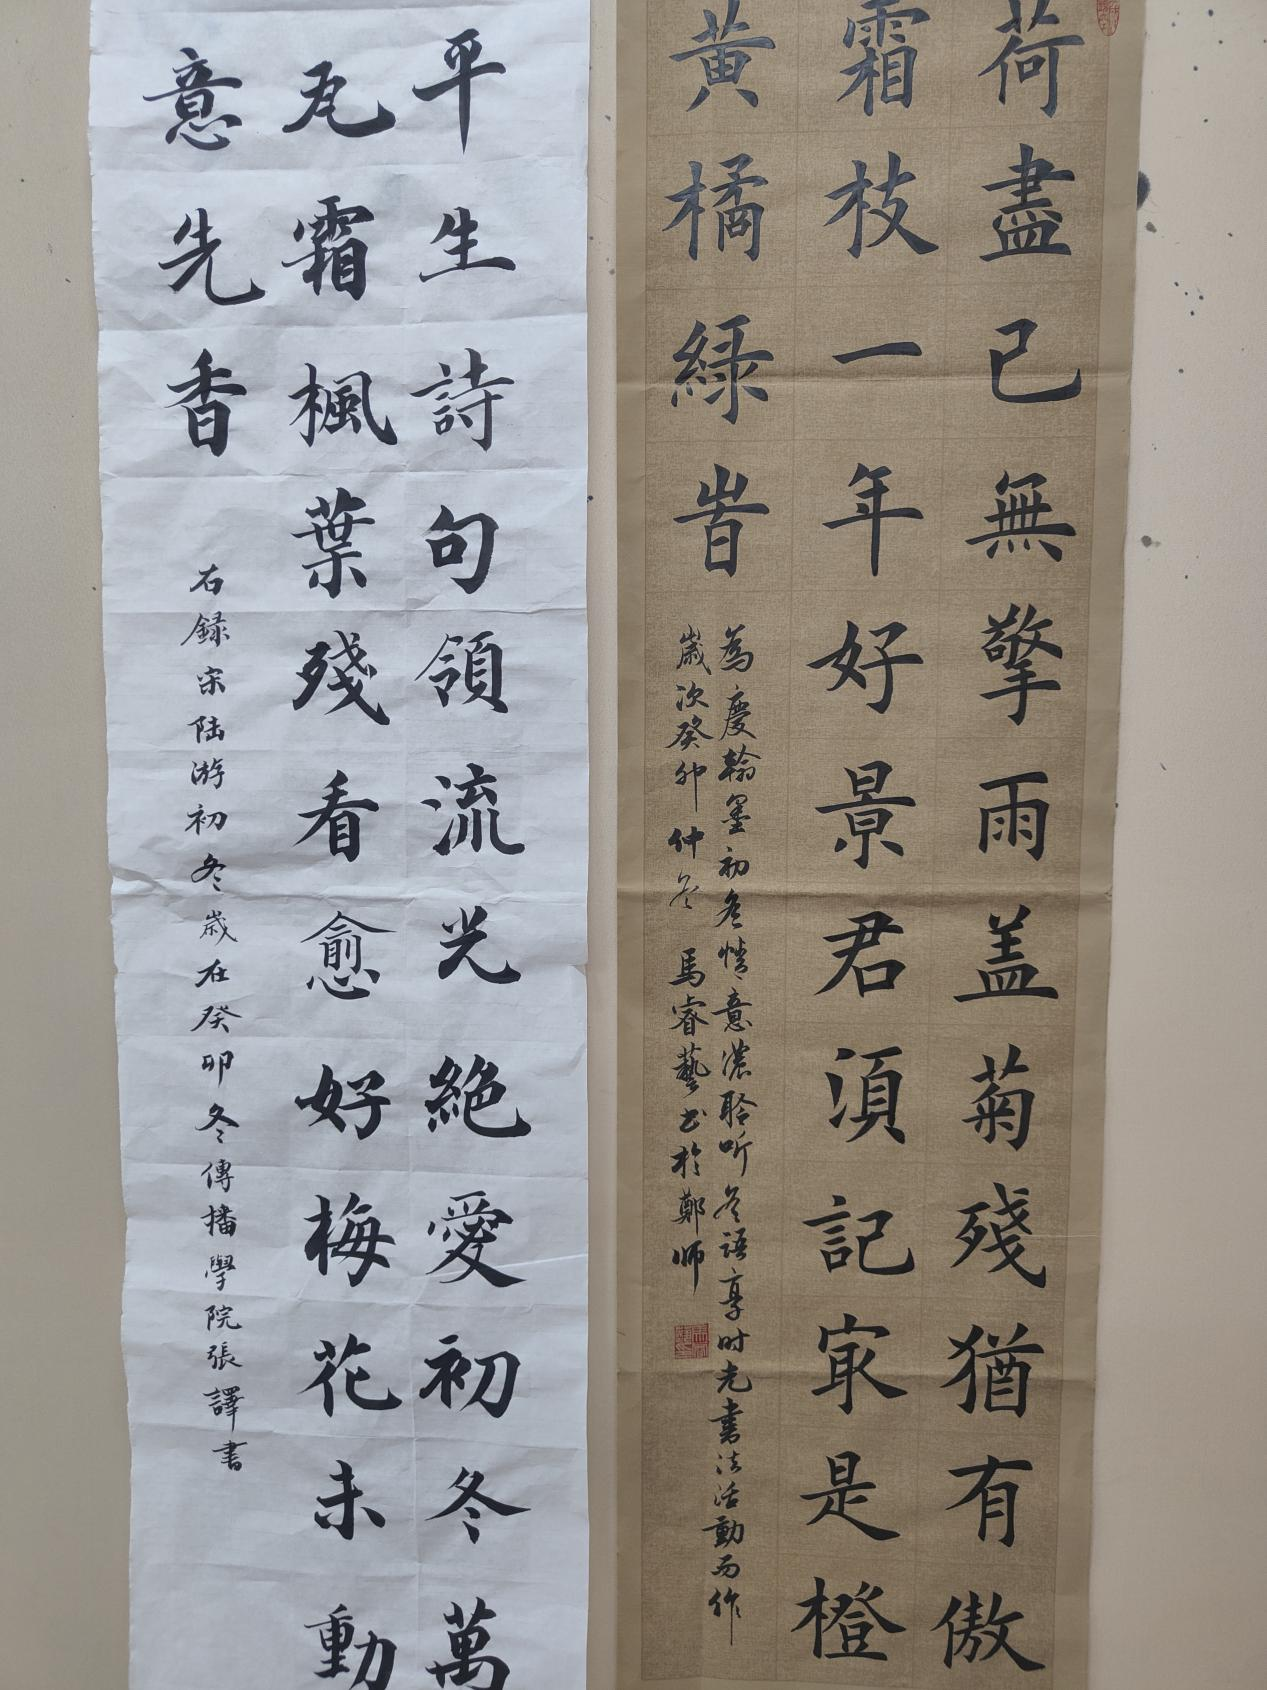 荷盡已無擎雨盖菊殘猶有傲
霜枝一年好景君須記冣是橙
黃橘綠旹
為慶翰墨初冬情意濃聆听冬語享时光書法活動而作
歲次癸卯仲冬 馬睿藝书於鄭师
平生詩句領流光絶愛初冬萬
瓦霜楓葉殘看愈好梅花未動
意先香
右録宋陆游初冬歲在癸卯冬傳播學院張譯書